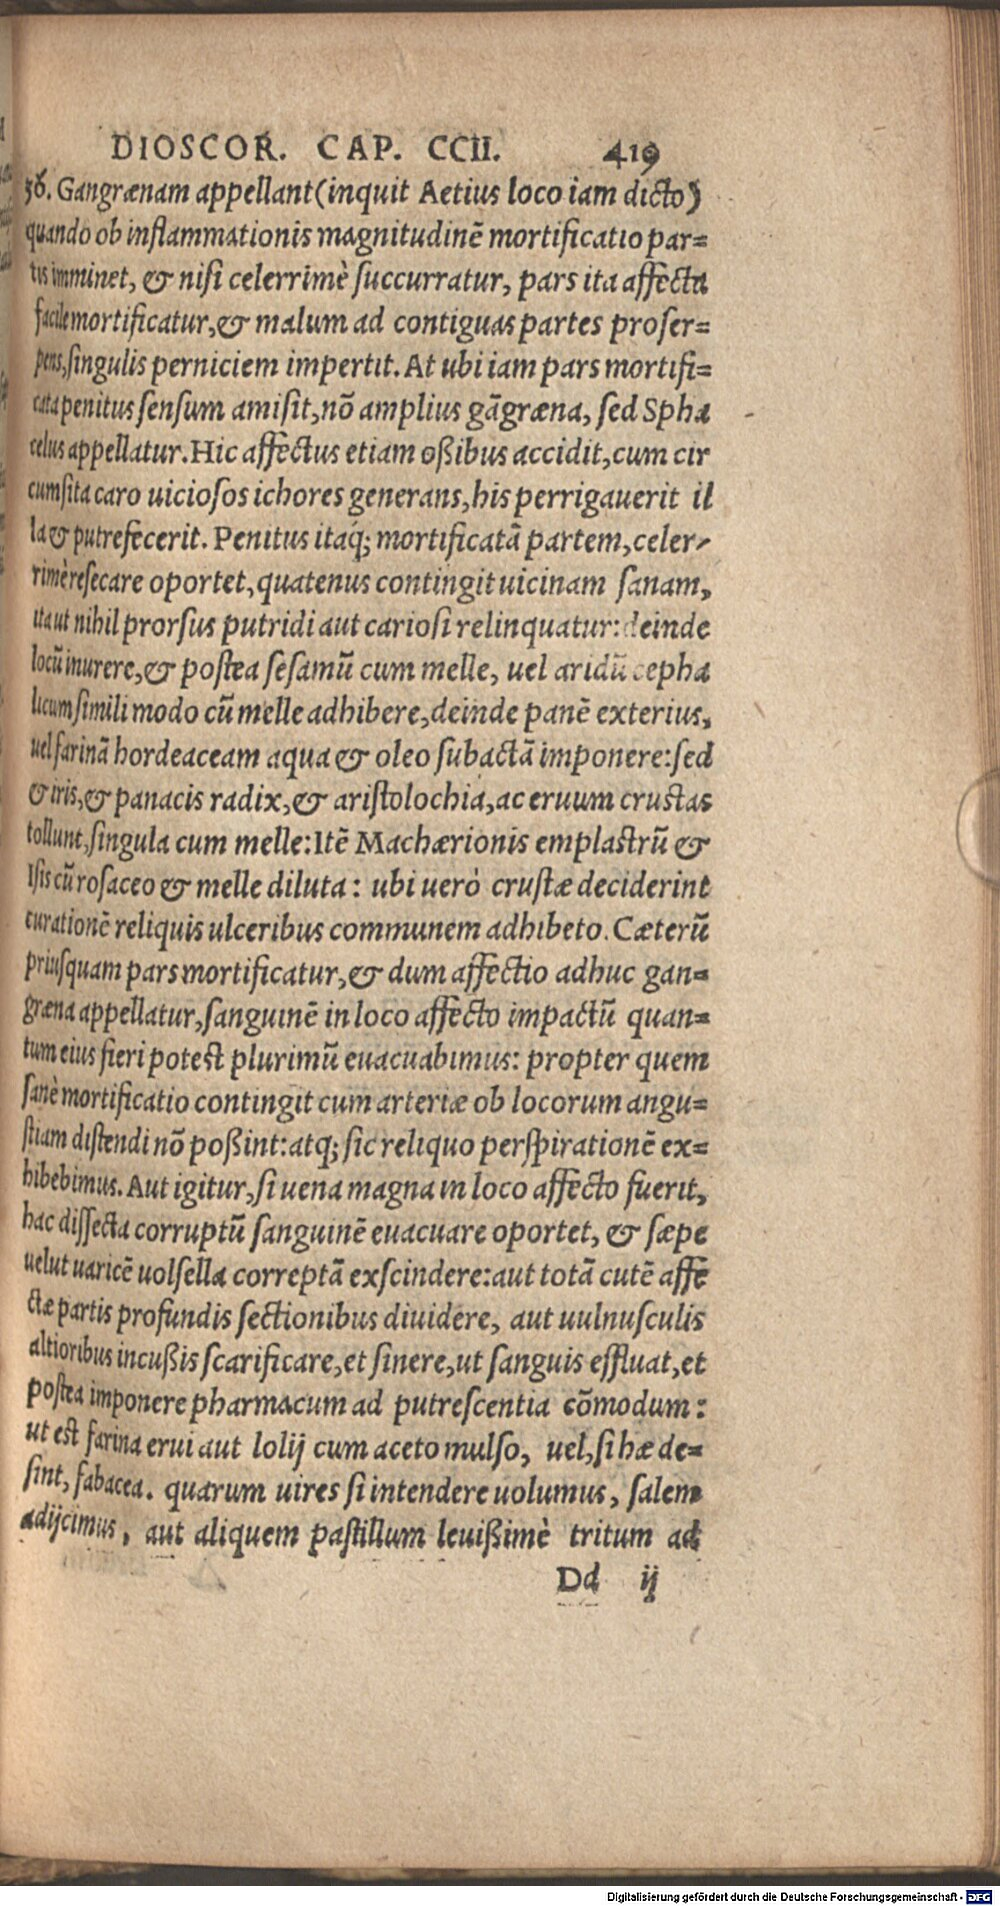 DIOSCOR. CAP. CCII. 419
56. Gangrænam appellant (inquit Aetius loco iam dicto)
quando ob inflammationis magnitudinē mortificatio par=
tis imminet, & nisi celerrimè succurratur, pars ita affecta
facile mortificatur, & malum ad contiguas partes proser=
pens, singulis perniciem impertit. At ubi iam pars mortifi=
cata penitus sensum amisit, nō amplius gāgræna, sed Spha
celus appellatur. Hic affectus etiam oßibus accidit, cum cir
cumsita caro uiciosos ichores generans, his perrigauerit il
la & putrefecerit. Penitus itaq; mortificatā partem, celer-
rimè resecare oportet, quatenus contingit uicinam sanam,
ita ut nihil prorsus putridi aut cariosi relinquatur: deinde
locū inurere, & postea sesamū cum melle, uel aridū cepha
licum simili modo cū melle adhibere, deinde panē exterius,
uel farinā hordeaceam aqua & oleo subactā imponere: sed
& iris, & panacis radix, & aristolochia, ac eruum crustas
tollunt, singula cum melle: Itē Machærionis emplastrū &
Isis cū rosaceo & melle diluta: ubi uerò crustæ deciderint
curationē reliquis ulceribus communem adhibeto. Cæterū
priusquam pars mortificatur, & dum affectio adhuc gan=
græna appellatur, sanguinē in loco affecto impactū quan=
tum eius fieri potest plurimū euacuabimus: propter quem
sanè mortificatio contingit cum arteriæ ob locorum angu=
stiam distendi nō poßint: atq; sic reliquo perspirationē ex=
hibebimus. Aut igitur, si uena magna in loco affecto fuerit,
hac dissecta corruptū sanguinē euacuare oportet, & sæpe
uelut uaricē uolsella correptā exscindere: aut totā cutē affe
ctæ partis profundis sectionibus diuidere, aut uulnusculis
altioribus incußis scarificare, et sinere, ut sanguis effluat, et
postea imponere pharmacum ad putrescentia cōmodum:
ut est farina erui aut lolij cum aceto mulso, uel, si hæ de=
sint, fabacea. quarum uires si intendere uolumus, salem
adijcimus, aut aliquem pastillum leuißimè tritum ad
Dd ij
Digitalisierung gefördert durch die Deutsche Forschungsgemeinschaft - DFG